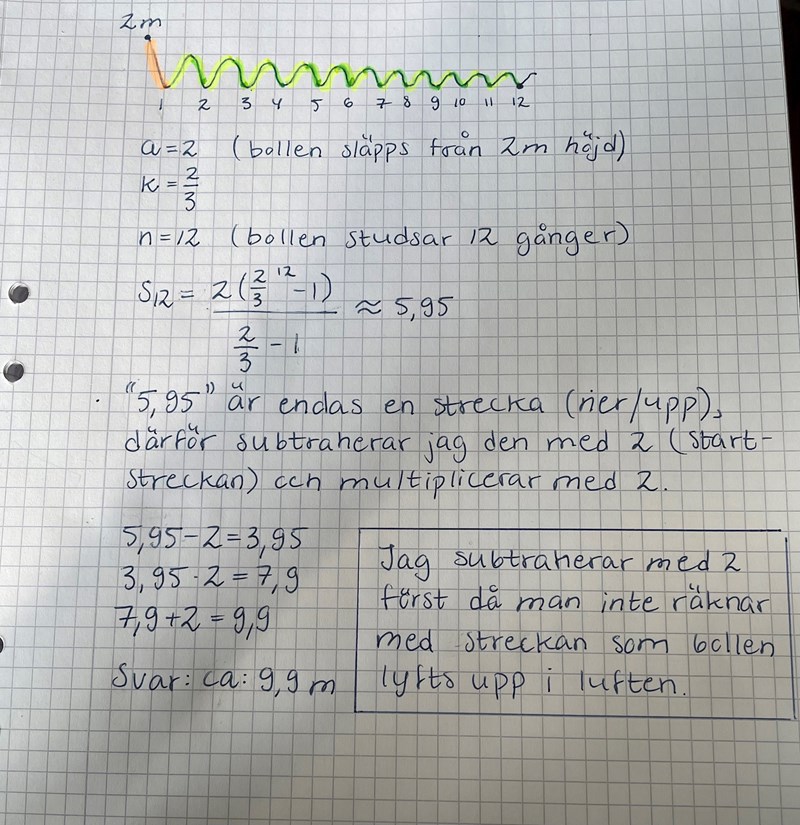 2m
1 2 3 4 5 6 7 8 9 10 11 12
a = 2 (bollen släpps från 2m höjd)
k = 2/3
n = 12 (bollen studsar 12 gånger)
S12 = 2(2/3^12 - 1) / (2/3 - 1) ≈ 5,95
"5,95" är endas en strecka (ner/upp),
därför subtraherar jag den med 2 (start-
streckan) och multiplicerar med 2.
5,95 - 2 = 3,95
3,95 · 2 = 7,9
7,9 + 2 = 9,9
Svar: ca: 9,9 m
Jag subtraherar med 2
först då man inte räknar
med streckan som bollen
lyfts upp i luften.